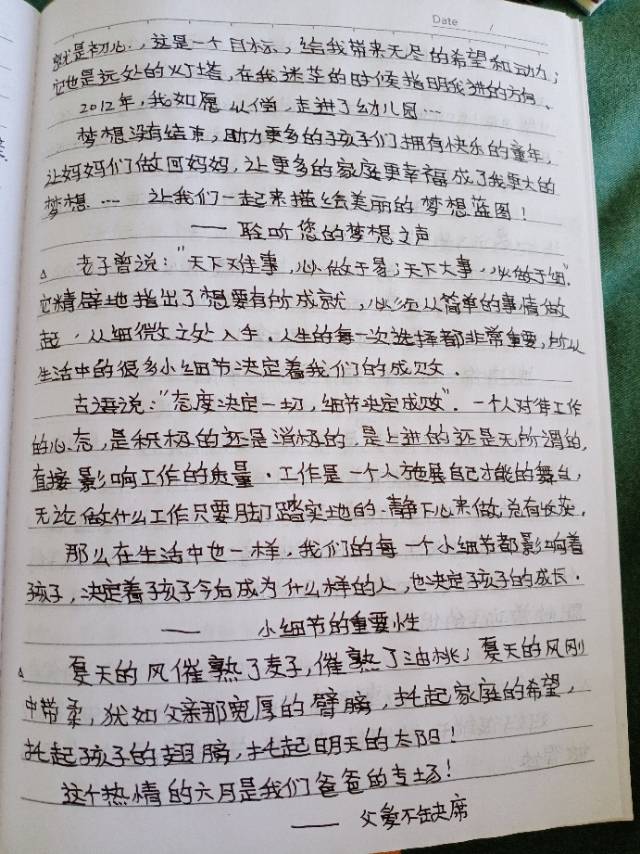 Date /
就是初心，这是一个目标，给我带来无尽的希望和动力；
它也是远处的灯塔，在我迷茫的时候指明我前进的方向。
2012年，我如愿以偿，走进了幼儿园…
梦想没有结束，助力更多的孩子们拥有快乐的童年，
让妈妈们做回妈妈，让更多的家庭更幸福成了我更大的
梦想…… 让我们一起来描绘美丽的梦想蓝图！
—— 聆听您的梦想之声
△ 老子曾说："天下难事，必做于易；天下大事，必做于细".
它精辟地指出了想要有所成就，必须从简单的事情做
起，从细微之处入手。人生的每一次选择都非常重要，所以
生活中的很多小细节决定着我们的成败．
古语说："态度决定一切，细节决定成败"．一个人对待工作
的心态，是积极的还是消极的，是上进的还是无所谓的，
直接影响工作的质量．工作是一个人施展自己才能的舞台，
无论做什么工作只要脚踏实地的．静下心来做，总有收获．
那么在生活中也一样，我们的每一个小细节都影响着
孩子，决定着孩子今后成为什么样的人，也决定孩子的成长．
—— 小细节的重要性
△ 夏天的风催熟了麦子，催熟了油桃；夏天的风刚
中带柔，犹如父亲那宽厚的臂膀，托起家庭的希望，
托起孩子的翅膀，托起明天的太阳！
这个热情的六月是我们爸爸的专场！
—— 父爱不缺席